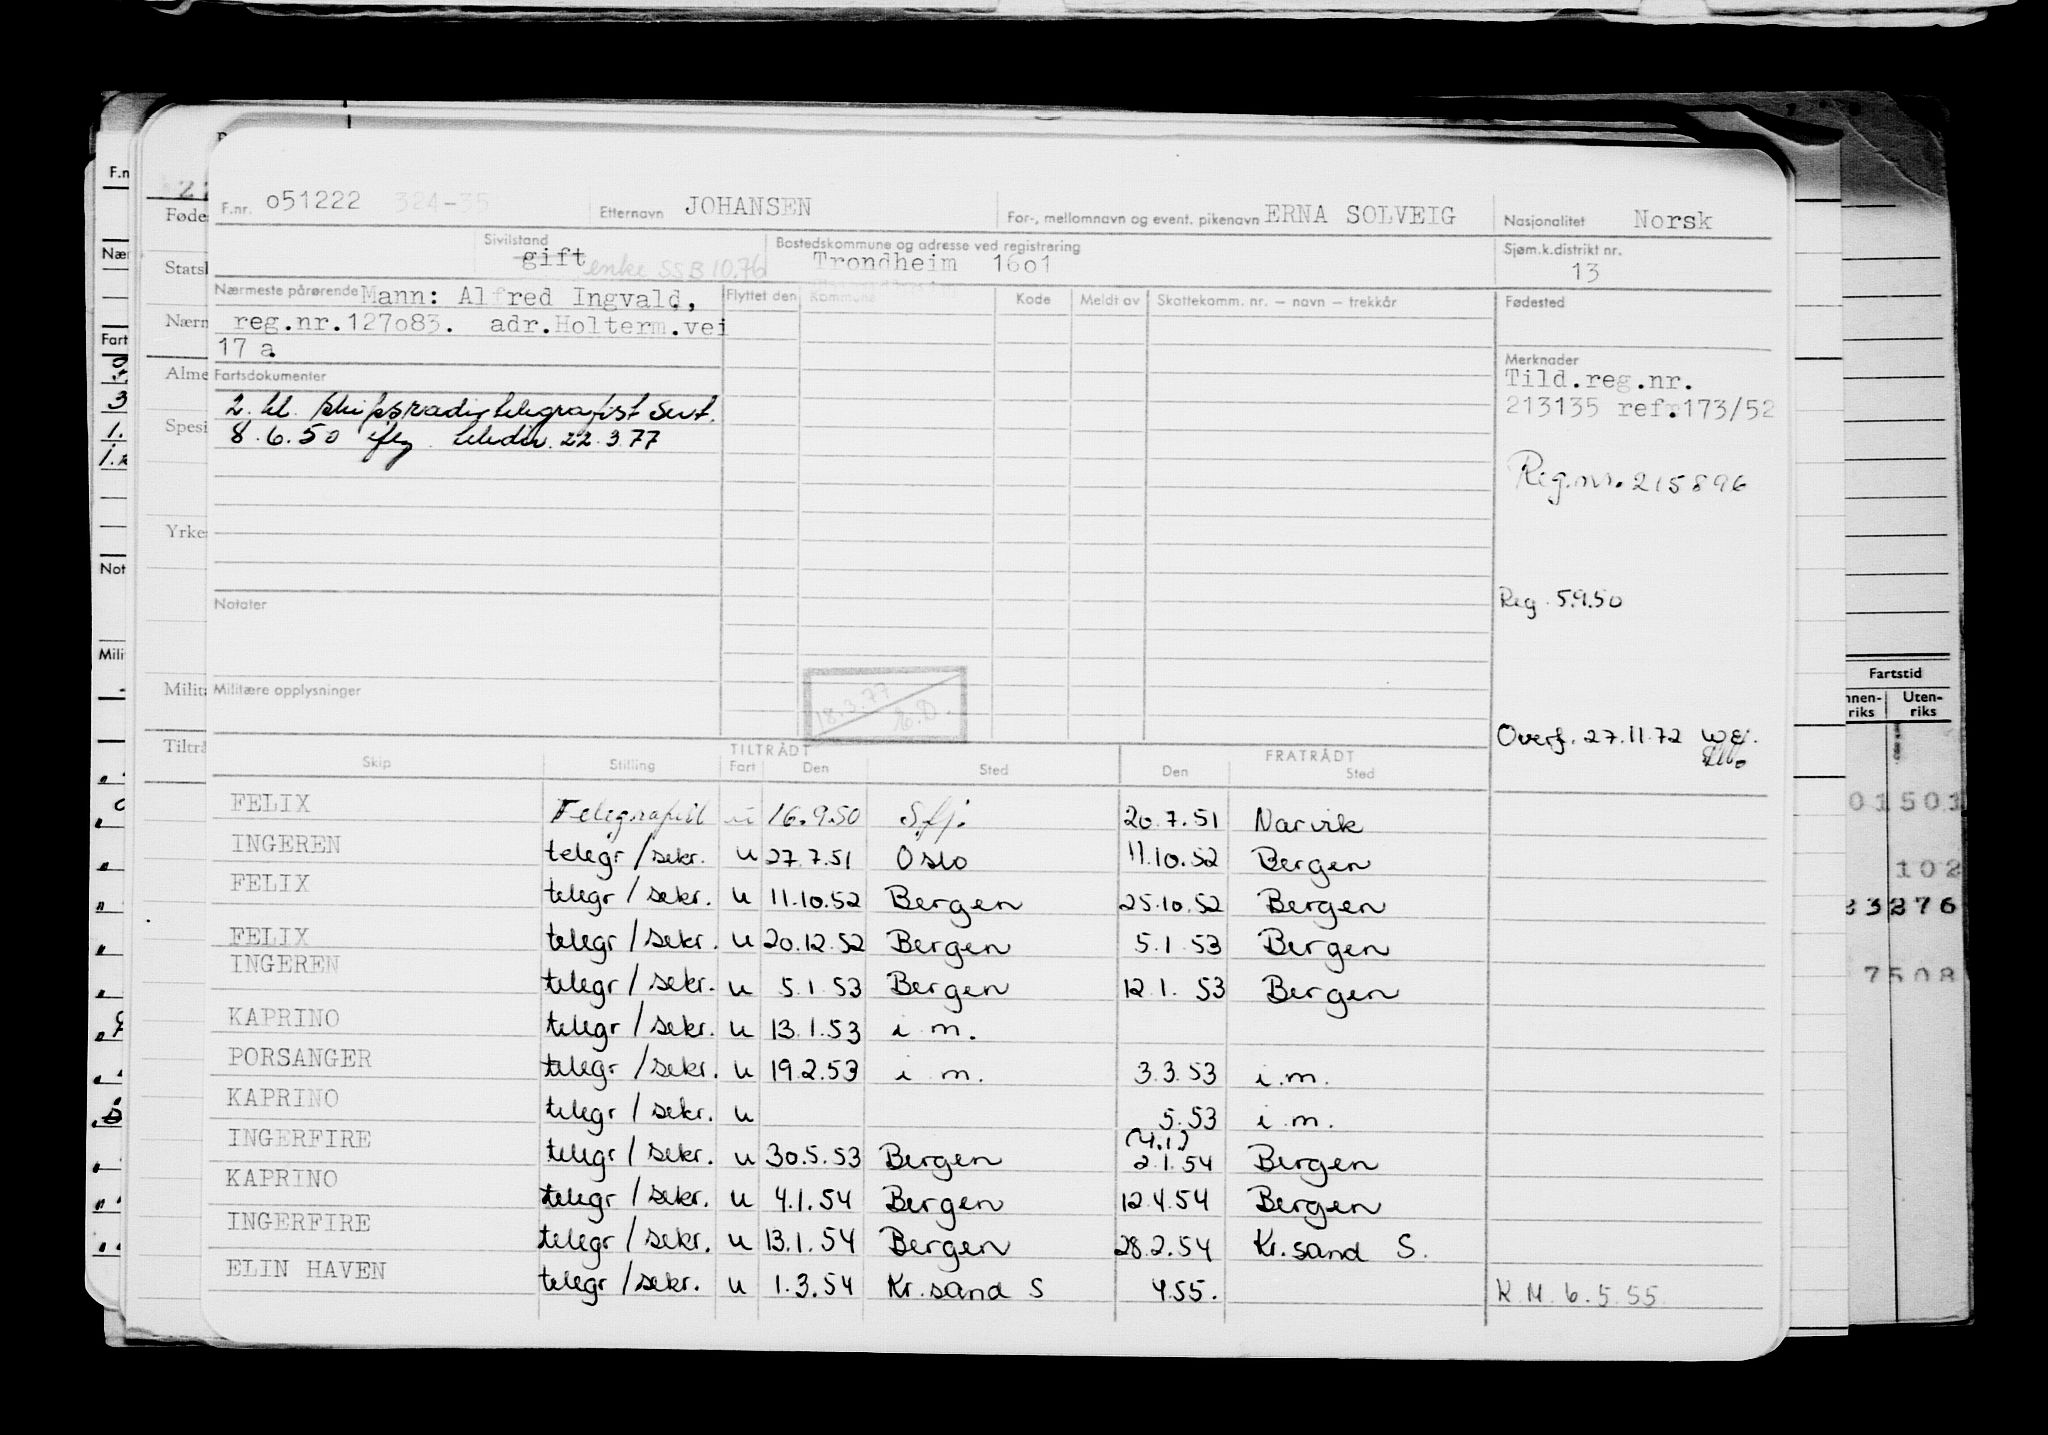 F.nr. 051222 324-35 Etternavn JOHANSEN For-, mellomnavn og event. pikenavn ERNA SOLVEIG Nasjonalitet Norsk
Sivilstand gift enke SSB 10.76 Bostedskommune og adresse ved registrering Trondheim 1601 Sjøm.k.distrikt nr. 13
Nærmeste pårørende Mann: Alfred Ingvald, Flyttet den Kommune Kode Meldt av Skattekomm. nr. — navn — trekkår Fødested
reg.nr.127083. adr.Holterm.vei
17 a
Merknader
Tild.reg.nr.
213135 ref.173/52
Fartsdokumenter
2. kl. skipsradiotelegrafist sert.
8.6.50 iflg. teledir. 22.3.77
Reg.nr. 215896
Reg. 5.9.50
Notater
Militære opplysninger
18.3.77
Overf. 27.11.72 WE.
Skip Stilling TILTRÅDT Fart Den Sted FRATRÅDT Den Sted
FELIX Telegrafist u 16.9.50 Sfj. 20.7.51 Narvik
INGEREN telegr/sekr. u 27.7.51 Oslo 11.10.52 Bergen
FELIX telegr/sekr. u 11.10.52 Bergen 25.10.52 Bergen
FELIX telegr/sekr. u 20.12.52 Bergen 5.1.53 Bergen
INGEREN telegr/sekr. u 5.1.53 Bergen 12.1.53 Bergen
KAPRINO telegr/sekr. u 13.1.53 i.m.
PORSANGER telegr/sekr. u 19.2.53 i.m. 3.3.53 i.m.
KAPRINO telegr/sekr. u 5.53 i.m.
INGERFIRE telegr/sekr. u 30.5.53 Bergen (4.1) 2.1.54 Bergen
KAPRINO telegr/sekr. u 4.1.54 Bergen 12.4.54 Bergen
INGERFIRE telegr/sekr. u 13.1.54 Bergen 28.2.54 Kr.sand S.
ELIN HAVEN telegr/sekr. u 1.3.54 Kr.sand S 4.55. K.M. 6.5.55
Fartstid
Uten-
riks riks
01501
102
7508